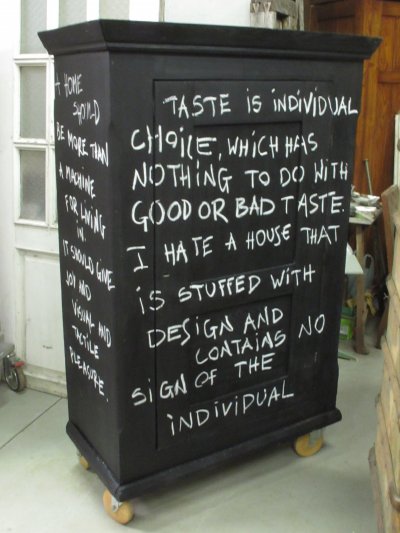 A HOME
SHOULD
BE MORE THAN
A MACHINE
FOR LIVING
IN.
IT SHOULD GIVE
JOY AND
VISUAL AND
TACTILE
PLEASURE.
TASTE iS iNDiViDUAL
CHOiCE, WHiCH HAS
NOTHiNG TO DO WiTH
GOOD OR BAD TASTE.
I HATE A HOUSE THAT
iS STUFFED WiTH
DESiGN AND
CONTAiNS NO
SiGN OF THE
iNDiViDUAL